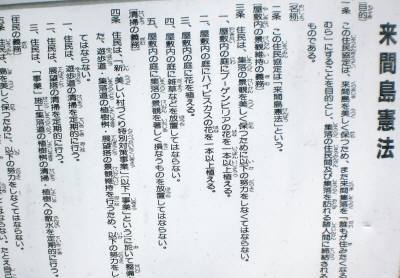 来間島憲法
目的
一条　この住民協定は、来間島を美しく保つため、また来間集落を「誰もが住みたくな
むら」にすることを目的とし、集落の住民間及び集落を訪れる諸人に締結される
ものである。
名称
二条　この住民協定は「来間島憲法」という。
屋敷内の景観維持の義務
三条　住民は、集落の景観を美しく保つために以下の努力をしなくてはならない。
一、屋敷内の庭にブーゲンビリアの花を一本以上植える。
二、屋敷内の庭にハイビスカスの花を一本以上植える。
三、屋敷内の庭に花を植える。
四、屋敷内の庭に雑草などを放置してはならない。
五、屋敷内の庭に集落の景観を著しく損なうものを放置してはならない。
清掃の義務
四条　住民は、「新・美しい村づくり特別対策事業」(以下「事業」という)において整備
た、遊歩道、集落道の植樹桝、展望塔の景観維持を行うため、以下の努力をしなく
てはならない。
一、住民は、遊歩道の清掃を定期的に行う。
二、住民は、展望塔の清掃を定期的に行う。
三、住民は、「事業」施工集落道の植樹桝の清掃、植樹への散水を定期的に行う。
住民の義務
住民は、島を美しく保つために、以下の努力をしなくてはならない。
てはならない。たとえ自